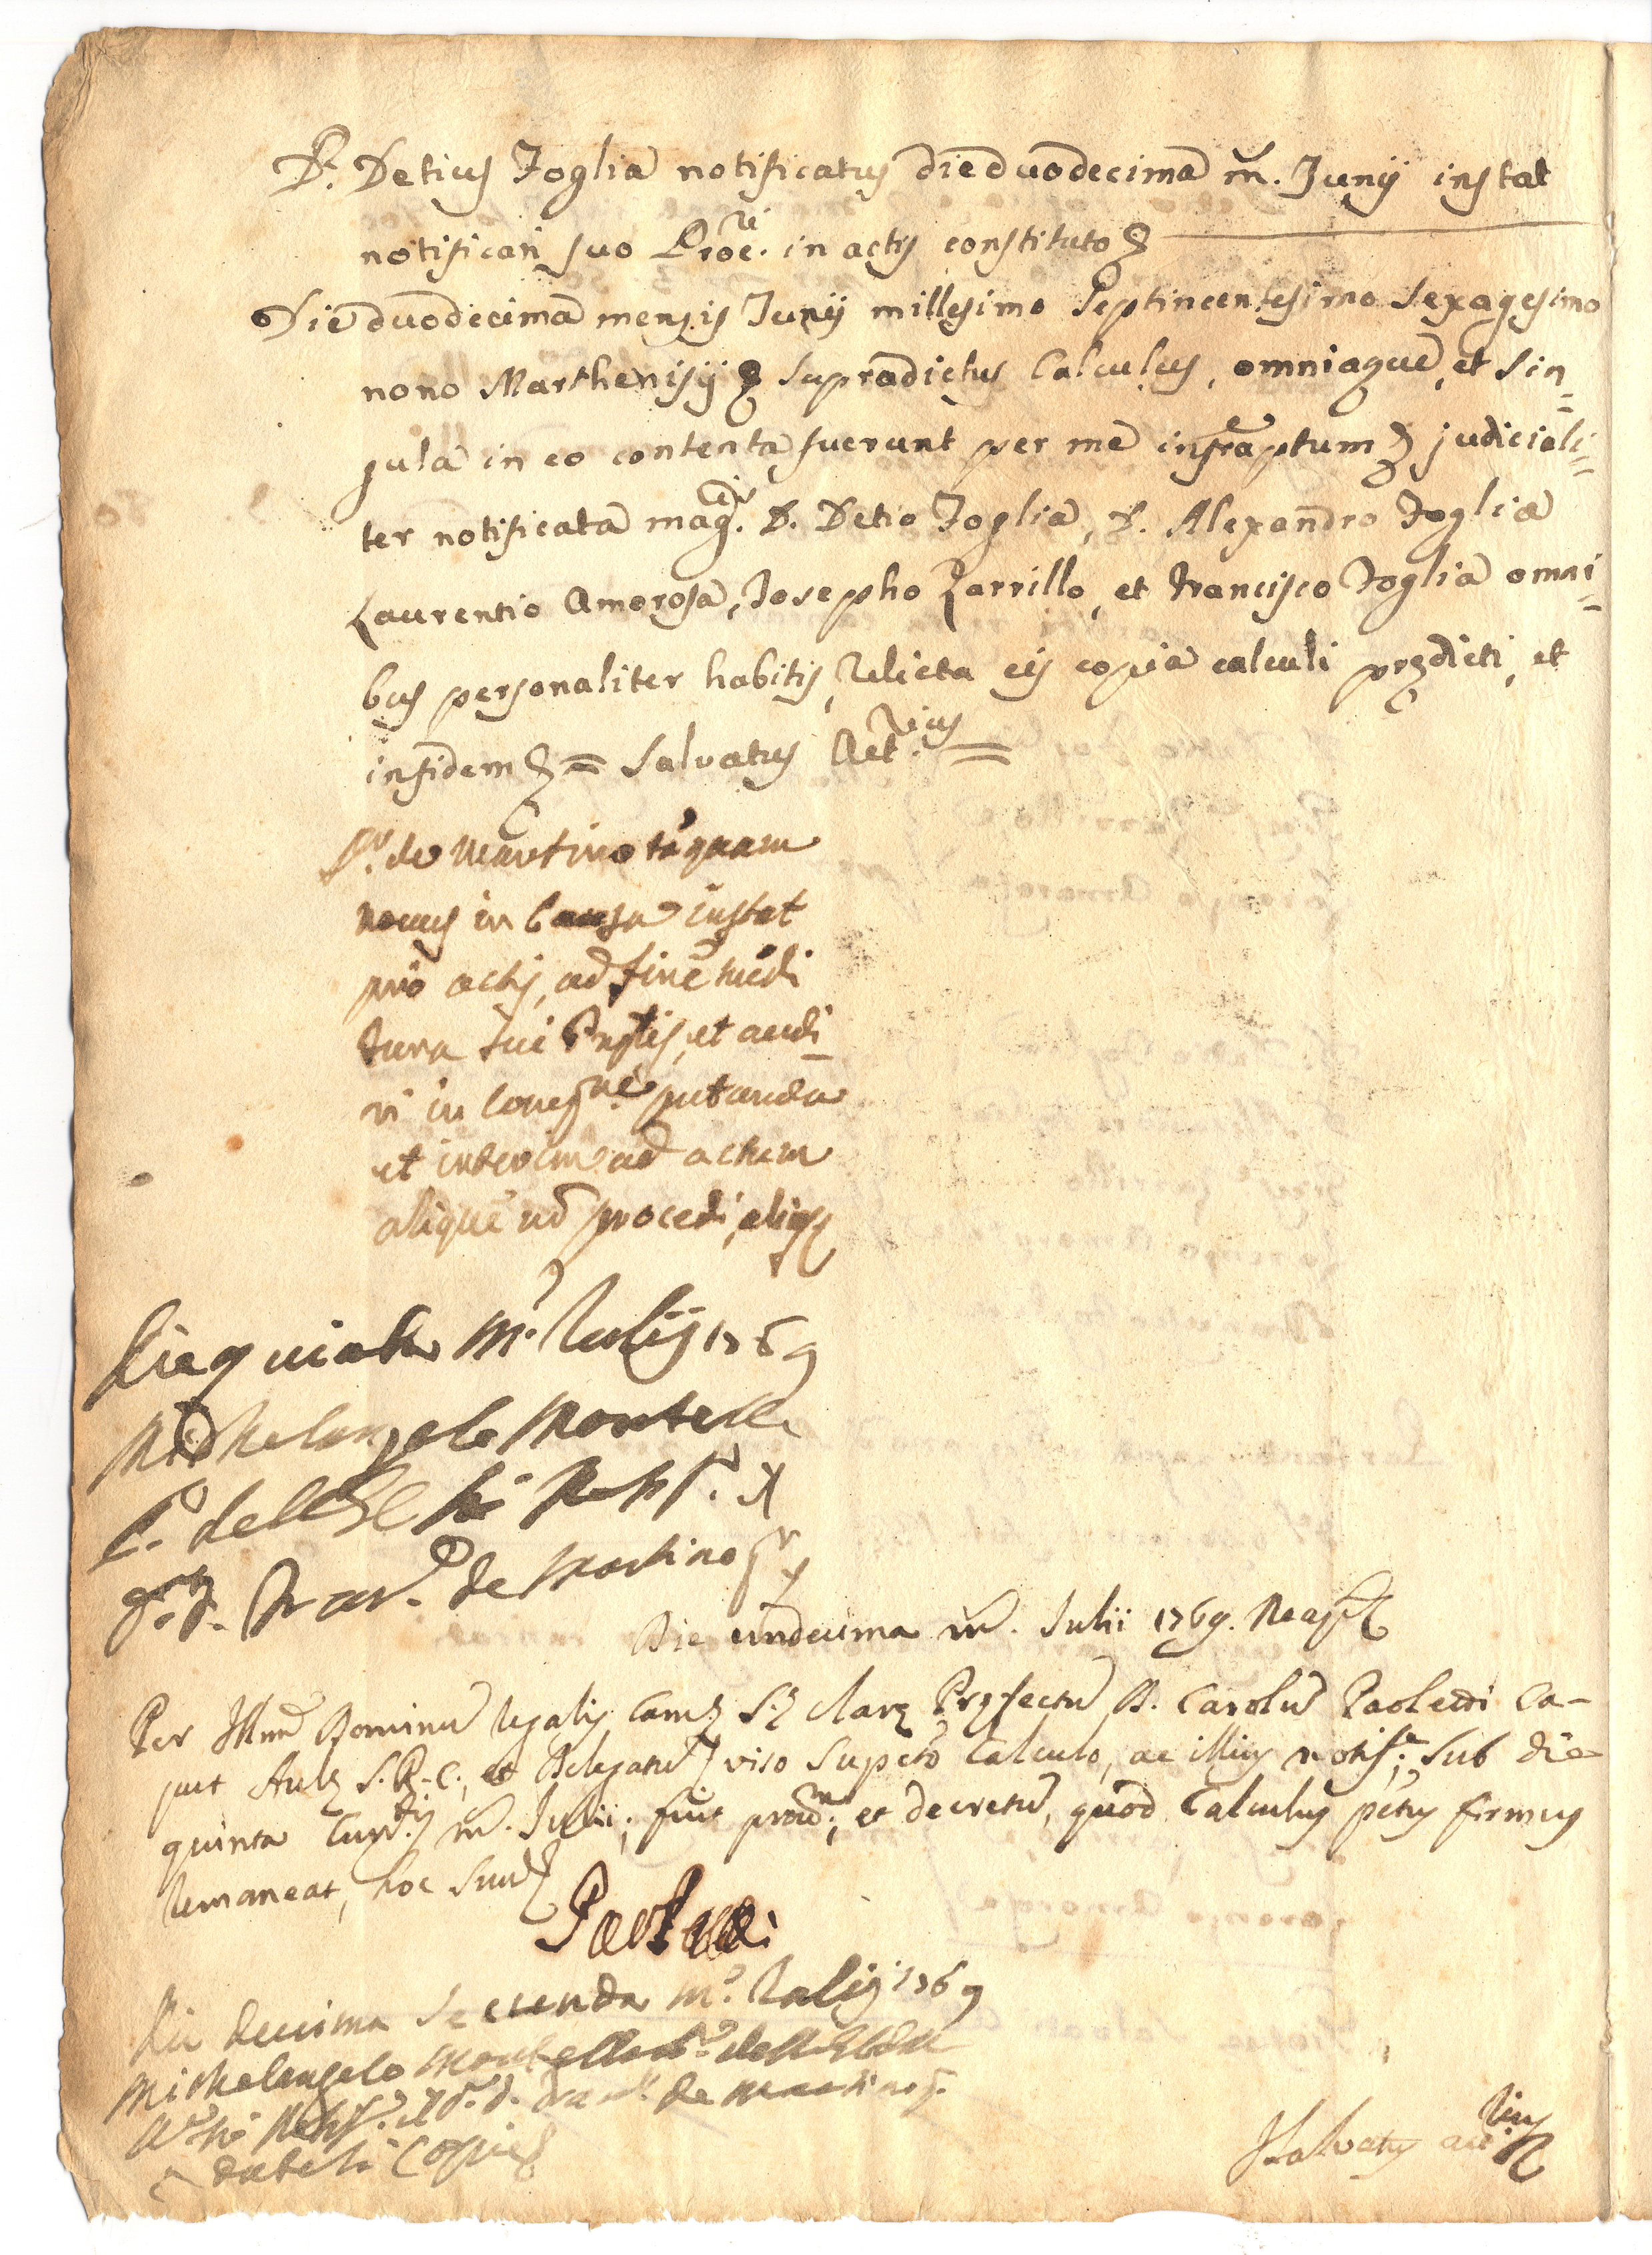 D. Detius Foglia notificatus die duodecima m. Junij instat
notificari suo Proc.ri in actis constituto
Die duodecima mensis Junij millesimo Septincentesimo Sexagesimo
nono Marthenisij Supradictus Calculus, omniaque, et Sin=
gula in eo contenta fuerunt per me infraptum judiciali=
ter notificata mag.cis D. Detio Foglia, D. Alexandro Foglia
Laurentio Amorosa, Josepho Zarrillo, et Francisco Foglia omni=
bus personaliter habitis, relicta eis copia calculi prędicti, et
in fidem = Salvatus Act.rius =
de Martino tãquam
novus in Causa instat
pro actis, ad finẽ
Jura sui et audi_
ri in putanda
et interim ad actum
aliquẽ nõ procedi, aliqs
Die quinta m. Julij 1769
Michelangelo Montella
P. de Martino
Die undecima m. Julii 1769. Neap.
Per Illm Dominũ Regalis Cam. S. Clarę Pręfectũ D. Carolũ Paoletti Ca-
put Aulę S. R. C., et Delegatũ viso Supcto Calculo, ac illius notif.e sub die
quinta m. Julii; fuit prov.; et decretũ, quod Calculus pctus firmus
remaneat, hoc suum
Paoletti
Die decima secunda m. Julij 1769
Michelangelo Montella
de Martino
Copia
Salvatus act.rius